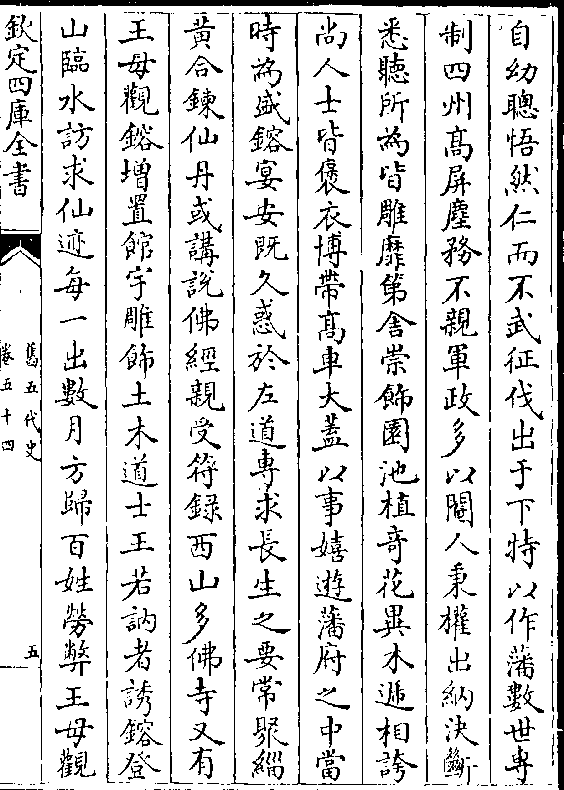 自幼聰悟然仁而不武征伐出于下特以作藩數世専
制四州髙屏塵務不親軍政多以閹人秉權出納決斷
悉聽所為皆雕靡第舍崇飾園池植竒花異木遞相誇
尚人士皆褒衣博帶髙車大蓋以事嬉遊藩府之中當
時為盛鎔宴安既久惑於左道専求長生之要常聚緇
黄合鍊仙丹或講説佛經親受符籙西山多佛寺又有
王母觀鎔増置館宇雕飾土木道士王若訥者誘鎔登
山臨水訪求仙迹每一出數月方歸百姓勞弊王母觀
欽定四庫全書
舊五代史
卷五十四
五